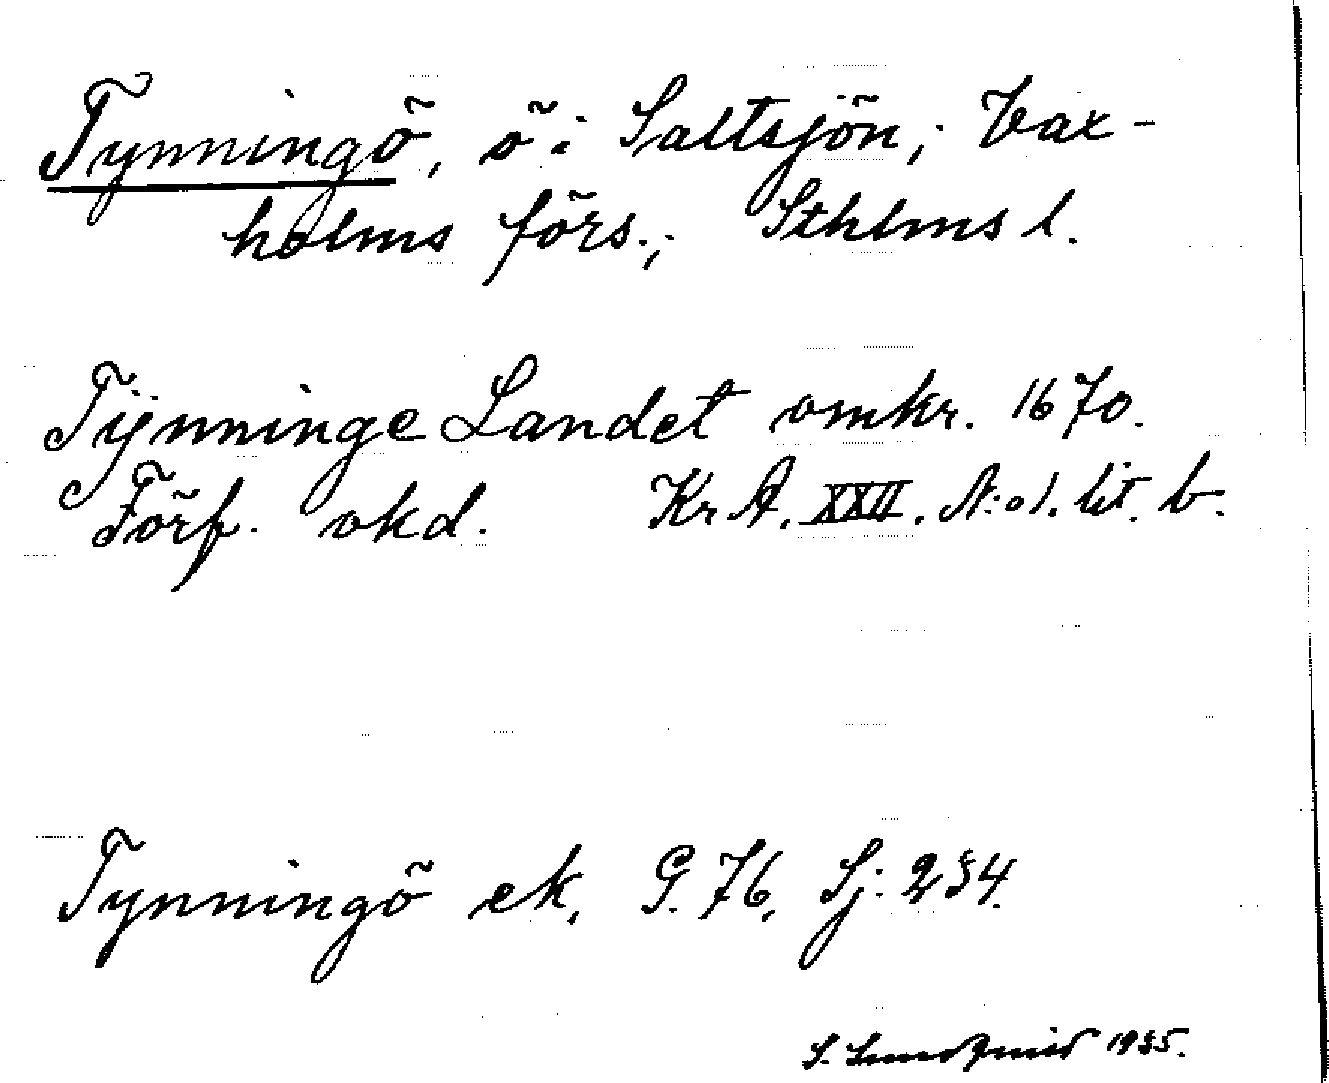 Tynningö, ö i Saltsjön, Vax-
holms förs., Sthlms l.
Tÿnninge Landet omkr. 1670.
Förf. okd. Kr A. XXII. N:o 1. lit. b.
Tynningö ek, G. 76, Sj: 234.
S. Lundqvist 1935.